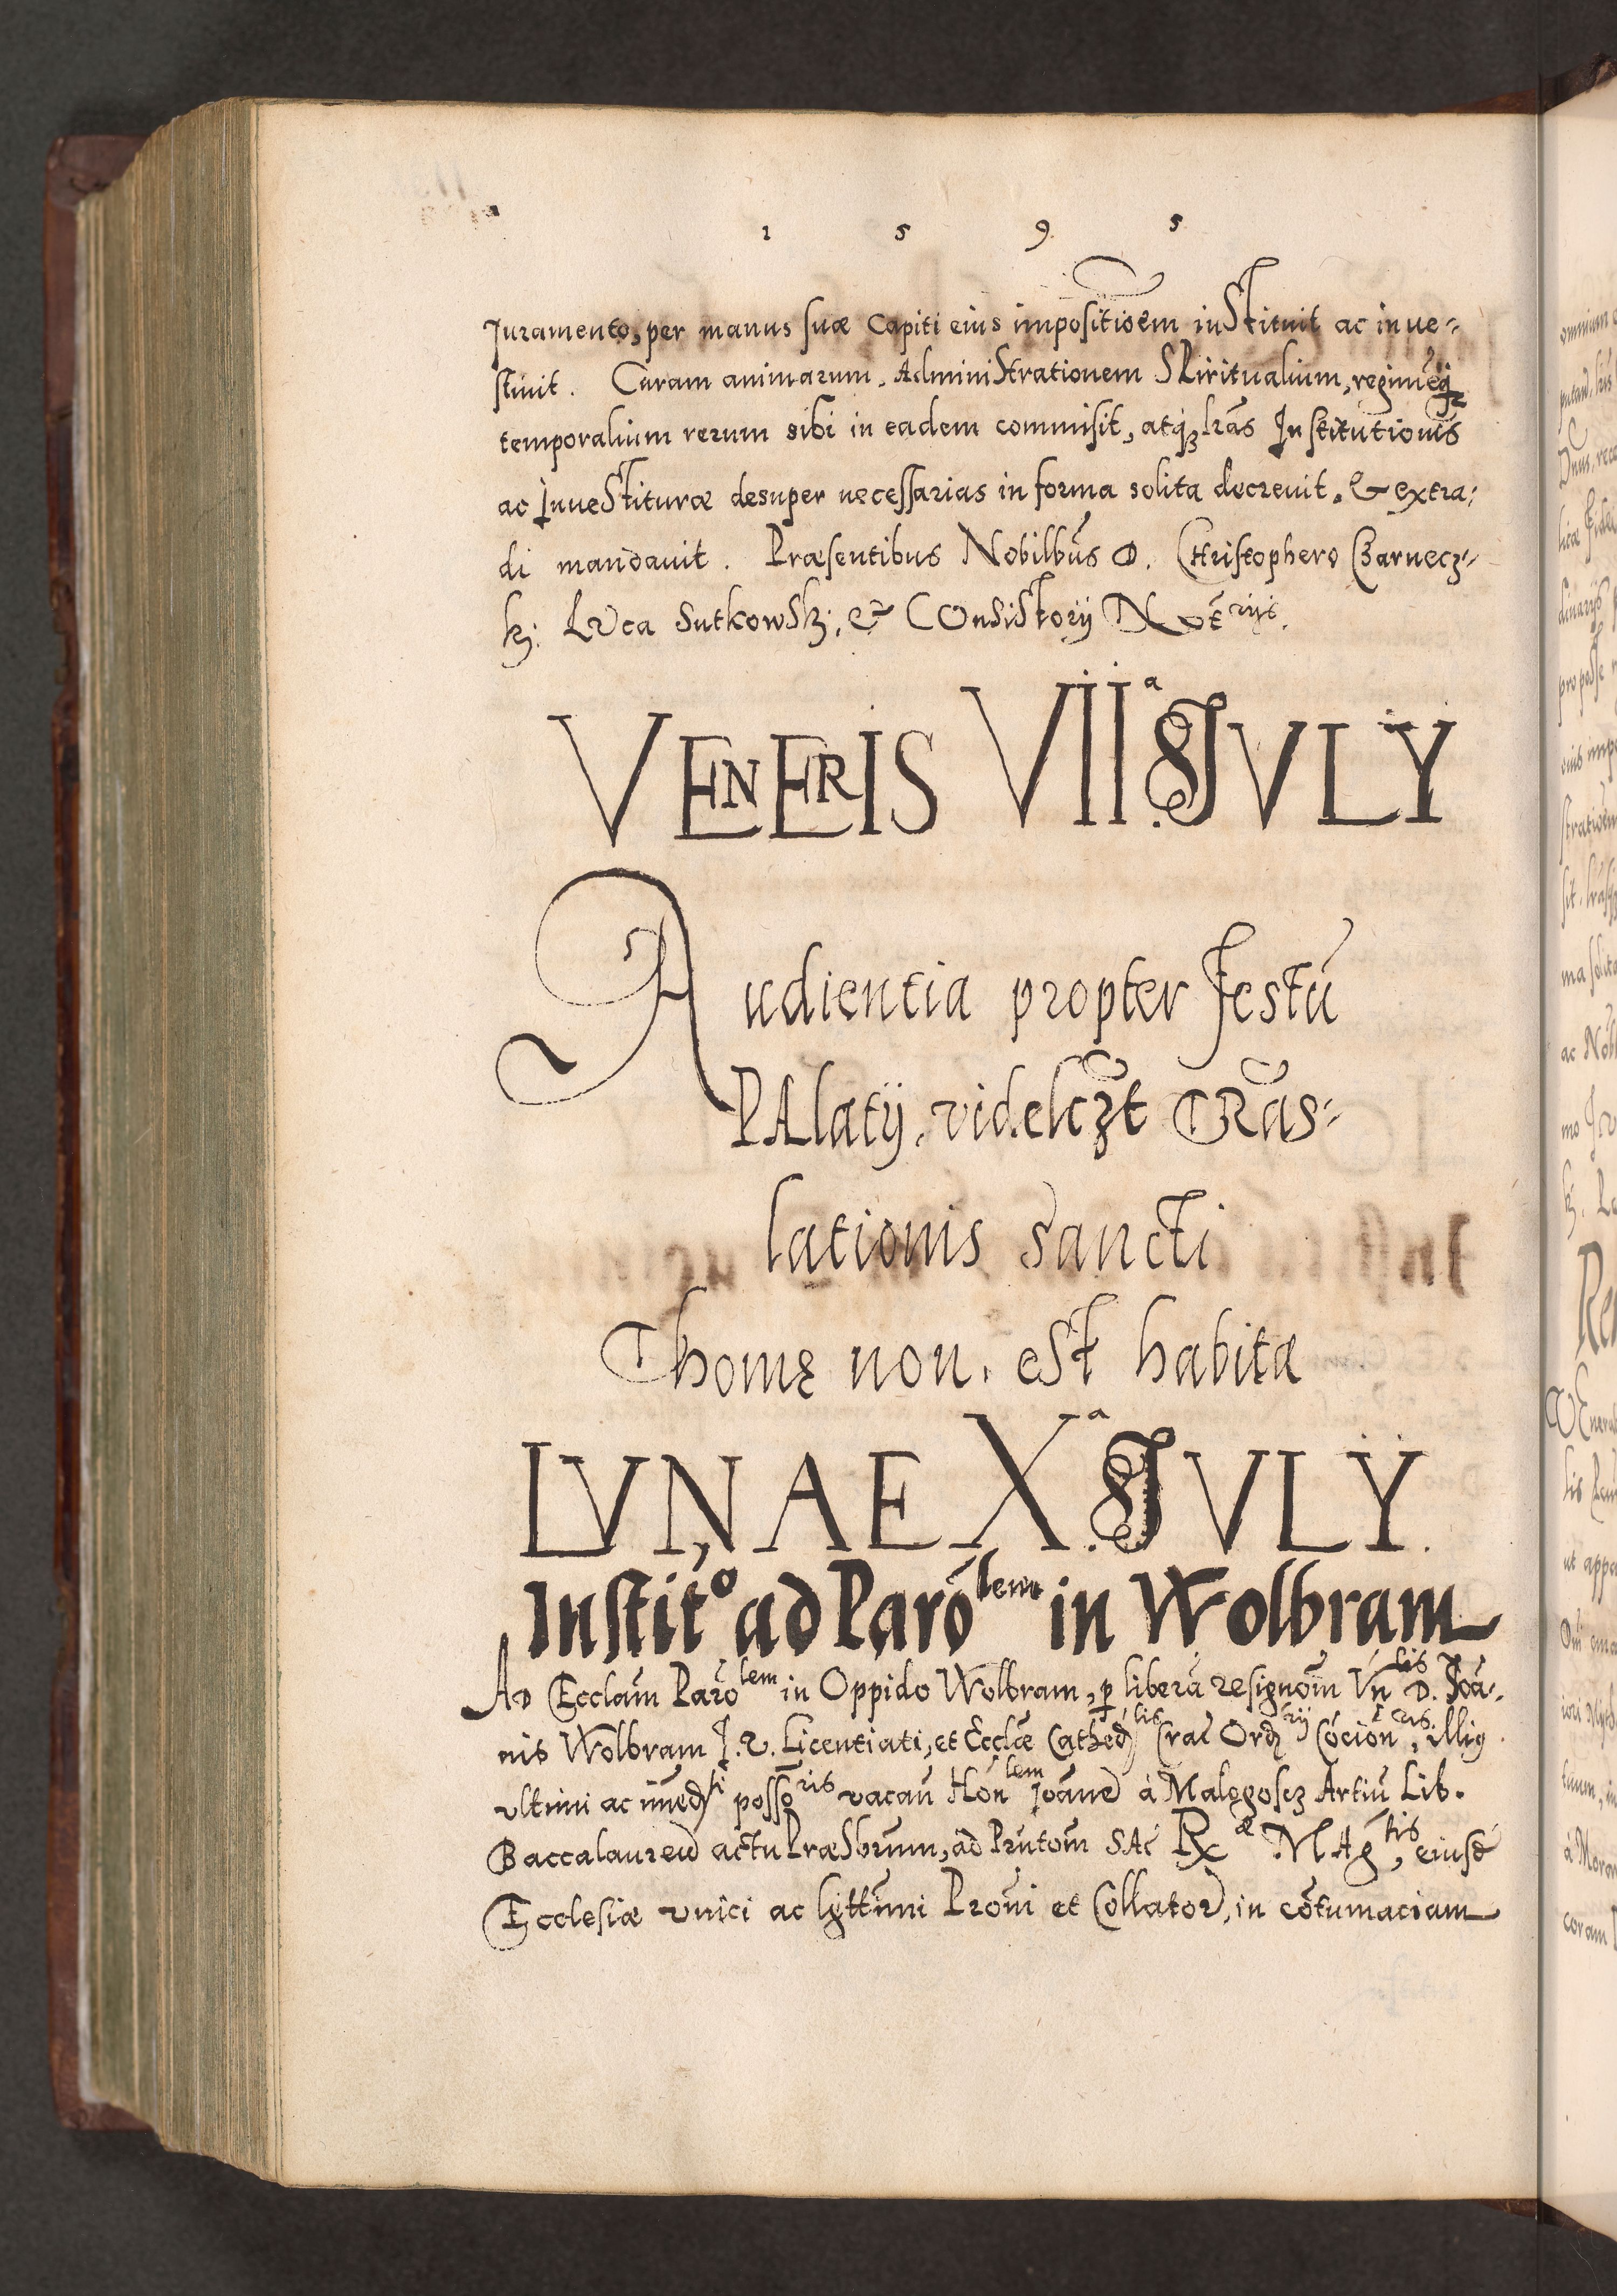 1 5 9 5
Juramento, per manus suæ capiti eius impositiōem instituit ac inve-
stiuit. Curam animarum, Administrationem Spiritualium, regimēq́
temporalium rerum sibi in eadem commisit, atq́ꝫ lr̃as Institutionis
ac Inuestituræ desuper necessarias in forma solita decreuit, & extra-
di mandauit. Præsentibus Nobilbūs D. Christophero Czarnecz-
kj. Luca Sutkowskj, & Consistorij Not̄rijs.
VENERIS VIIª. JVLY
Audientia propter Festū
Palatij, videlczt Trās-
lationis sancti
Thomę non. est habita
LVNAE Xª. JVLY.
Institº ad Parōlem in Wolbram
Ad Ecclam̄ Parōlem in Oppido Wolbram, ꝑ liberā resignōm Vn̄lis D. Joā-
nis Wolbram J. V. Licentiati, et Ecclæ Cathedlis Crac Ordrij Cōcionris, illig
vltimi ac im̄edti possōris vacan̄ Honlem Joāne à Malogoscz Artiū Lib.
Baccalaureū actu Præsbrūm, ad Prn̄tom̄ Sac Rx̄æ Mag̃tis, eiusd̄
Ecclesiæ vnici ac lgtt̄imi Prōni et Collator, in cōtumaciam